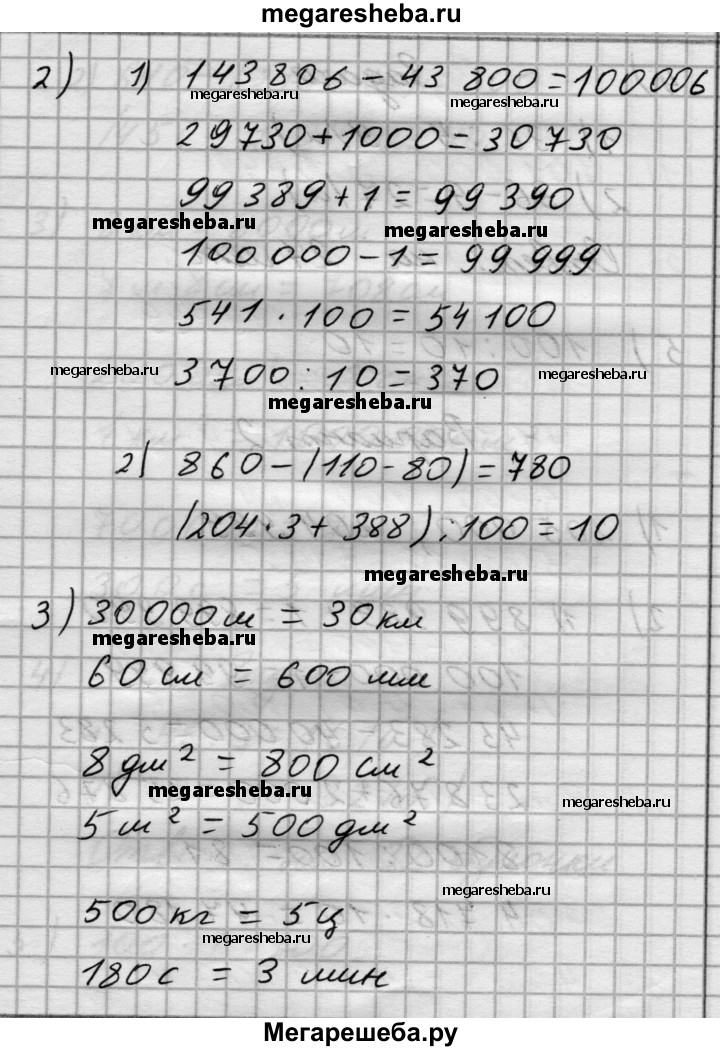 megaresheba.ru
2) 1) 143 806 - 43 800 = 100 006
megaresheba.ru megaresheba.ru
29 730 + 1000 = 30 730
99 389 + 1 = 99 390
megaresheba.ru megaresheba.ru
100 000 - 1 = 99 999
541 · 100 = 54 100
megaresheba.ru 3 700 : 10 = 370 megaresheba.ru
megaresheba.ru
2) 860 - (110 - 80) = 780
(204 · 3 + 388) : 100 = 10
megaresheba.ru
3) 30 000 м = 30 км
megaresheba.ru
60 см = 600 мм
8 дм² = 800 см²
megaresheba.ru megaresheba.ru
5 м² = 500 дм²
megaresheba.ru
500 кг = 5 ц
megaresheba.ru
180 с = 3 мин
Мегарешеба.ру